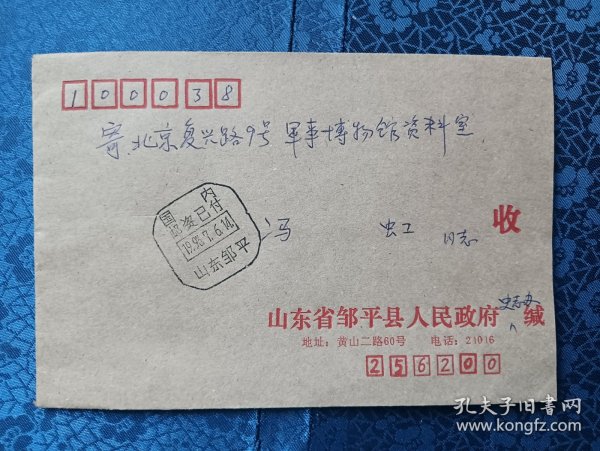 100038
寄 北京复兴路9号 军事博物馆资料室
国内
邮资已付
山东邹平
冯 虹 同志 收
史志办
山东省邹平县人民政府 缄
地址：黄山二路60号 电话：21016
256200
孔夫子旧书网
www.kongfz.com